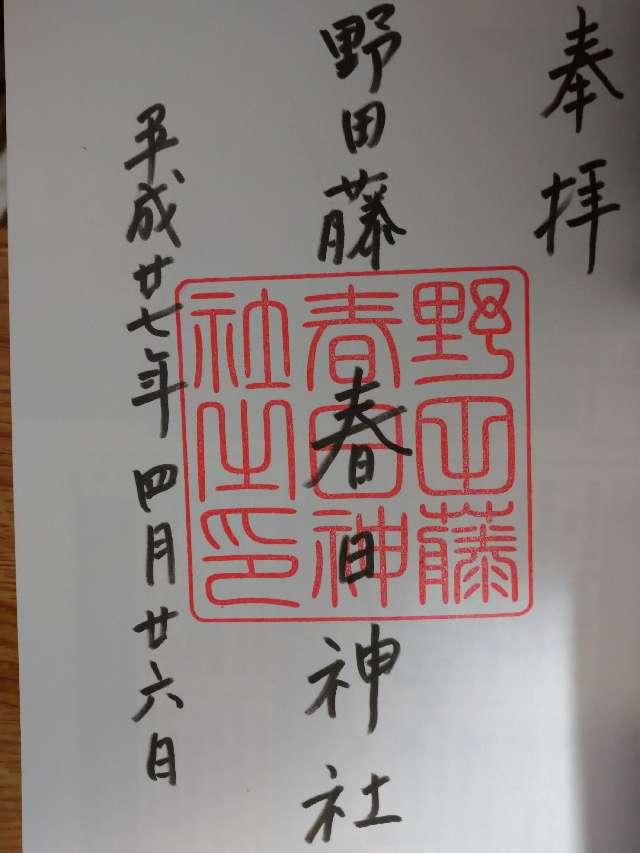 奉拝
野田藤春日神社
野田藤
春日神
社之印
平成廿七年四月廿六日